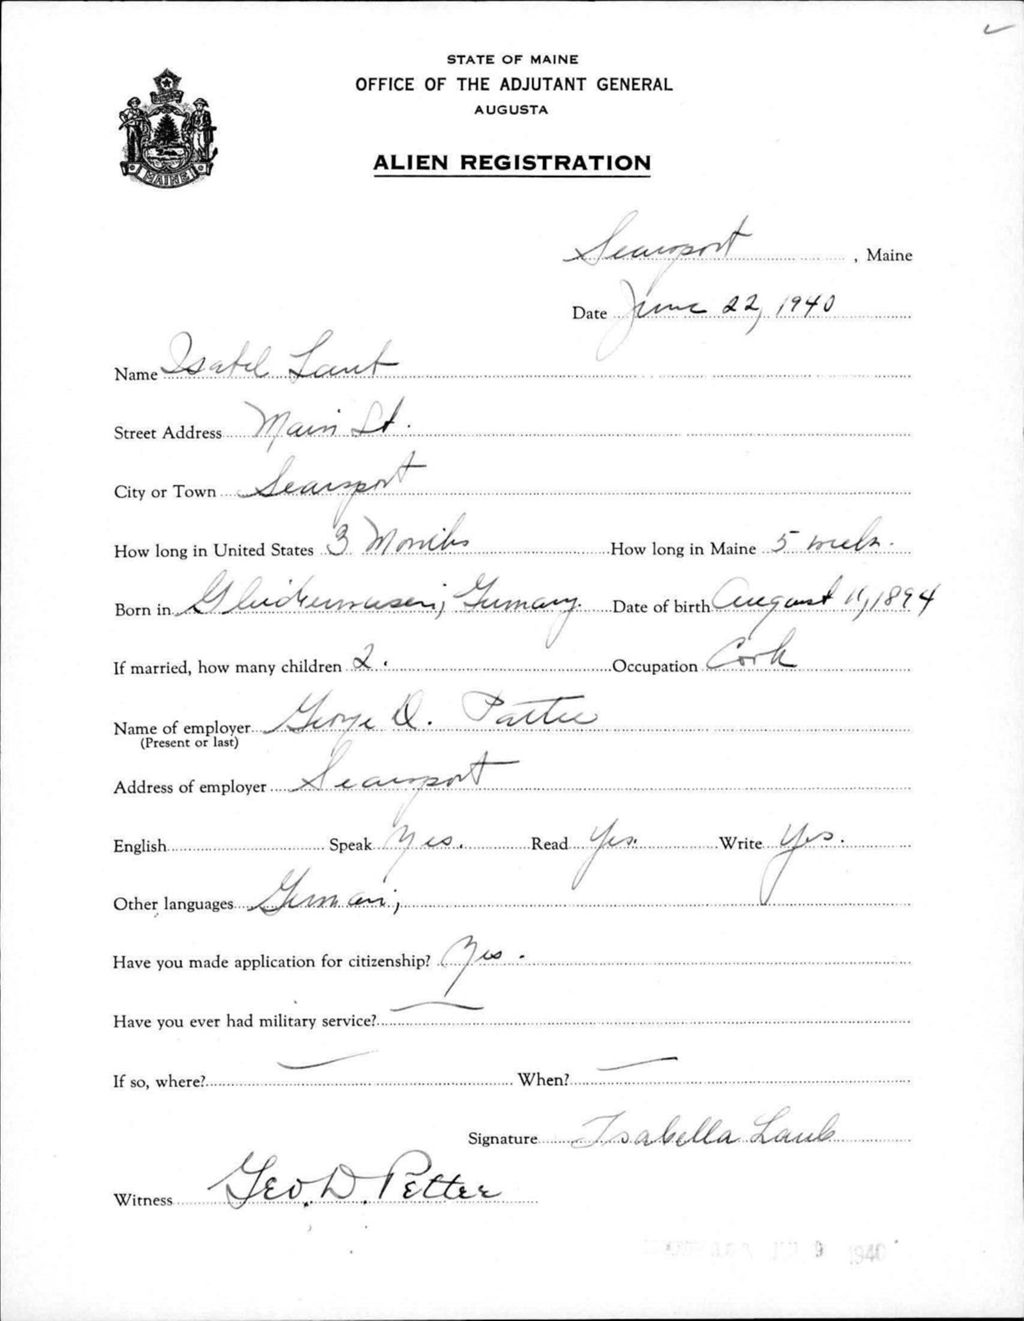 STATE OF MAINE
OFFICE OF THE ADJUTANT GENERAL
AUGUSTA
MAINE
ALIEN REGISTRATION
Searsport, Maine
Date June 22, 1940
Name Isabel Laut
Street Address Main St.
City or Town Searsport
How long in United States 3 Months How long in Maine 5 weeks.
Born in Germany. Date of birth August 11, 1894
If married, how many children 2. Occupation Cook
Name of employer George D.
(Present or last)
Address of employer Searsport
English Speak Yes. Read Yes. Write Yes.
Other languages German;
Have you made application for citizenship? Yes.
Have you ever had military service? —
If so, where? — When? —
Signature Isabella Laub
Witness Geo. D. Pettee
9 1940